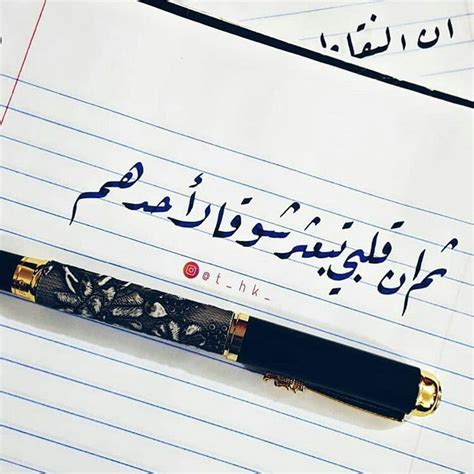 ان النقاء
ثم ان قلبي تبعثر شوقا لأحدهم
@t_hk_